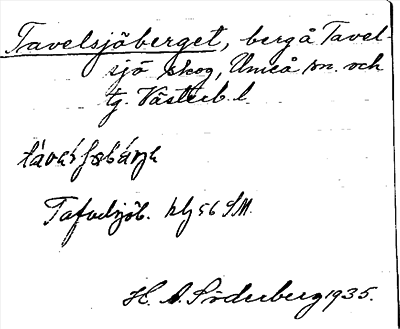 Tavelsjöberget, berg å Tavel-
sjö skog, Umeå sn. och
tg. Västerb. l.
Tafvelsjöb. blj 56 SM.
H. A. Söderberg 1935.